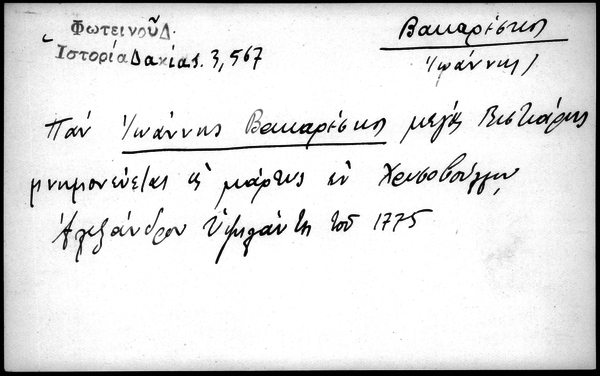 Φωτεινοῦ Δ.
Ἱστορία Δακίας. 3, 567
Βακαρέσκος
Ἰωάννης
Πάν Ἰωάννης Βακαρέσκος μέγας Βιστιάρης
μνημονεύεται ὡς μάρτυς ἐν Χρυσοβούλλῳ
Ἀλεξάνδρου Ὑψηλάντη τοῦ 1775